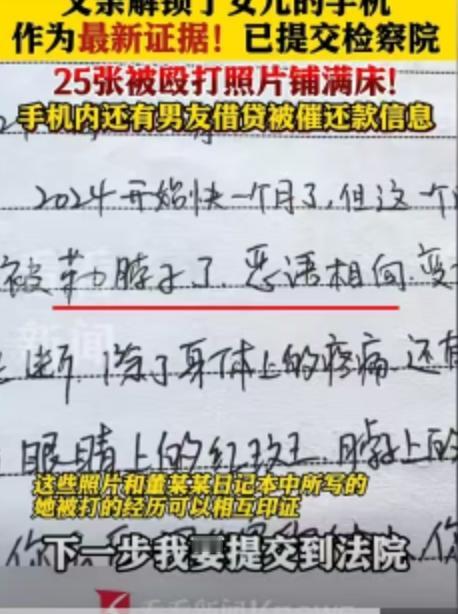 父亲解锁了女儿的手机
作为最新证据！已提交检察院
25张被殴打照片铺满床！
手机内还有男友借贷被催还款信息
2024开始快一个月了，但这一个
被勒脖子了，恶语相向，变
断，除了身体上的疼痛，还有
眼睛上的红斑，脖子上的
这些照片和董某某日记本中所写的
她被打的经历可以相互印证
下一步我要提交到法院
你
看看新闻Knews